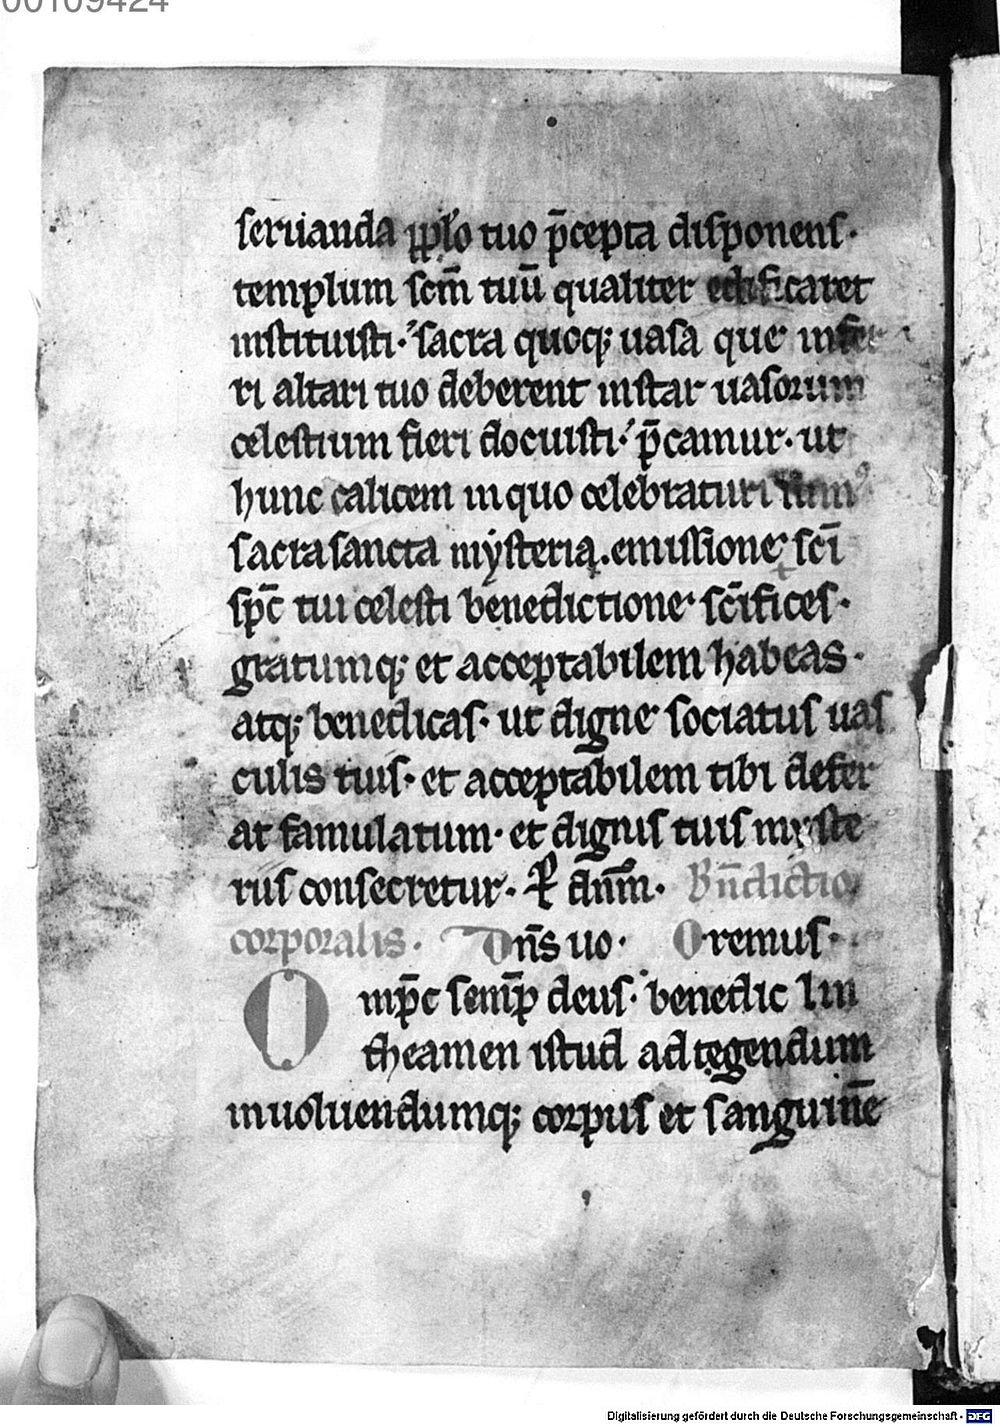 00109424
seruanda pplo tuo p̄cepta disponens·
templum scm̄ tuū qualiter edificaret
instituisti· sacra quoq; uasa que infer
ri altari tuo deberent instar uasorum
celestium fieri docuisti· p̄camur· ut
hunc calicem in quo celebraturi sumꝰ
sacrasancta mysteria. emissione sc̄i
sp̄c tui celesti benedictione sc̄ifices·
gratumq; et acceptabilem habeas·
atq; benedicas· ut digne sociatus uas
culis tuis· et acceptabilem tibi defer
at famulatum· et dignis tuis myste
riis consecretur· P dn̄m· Bn̄dictio
corporalis· Dn̄s uo· Oremus·
Omp̄c semp̄ deus· benedic lin
theamen istud ad tegendum
inuoluendumq; corpus et sanguinē
Digitalisierung gefördert durch die Deutsche Forschungsgemeinschaft - DFG